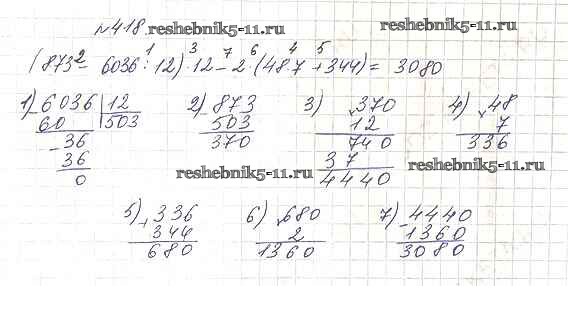 №418. reshebnik5-11.ru reshebnik5-11.ru
2 1 3 7 6 4 5
(873 - 6036 : 12) · 12 - 2 · (48·7 + 344) = 3080
1) 6036 12 2) 873 3) 370 4) 48
- 60 503 - 503 × 12 × 7
- 36 370 740 336
36 37
0 4440
reshebnik5-11.ru reshebnik5-11.ru
5) 336 6) 680 7) 4440
+ 344 × 2 - 1360
680 1360 3080